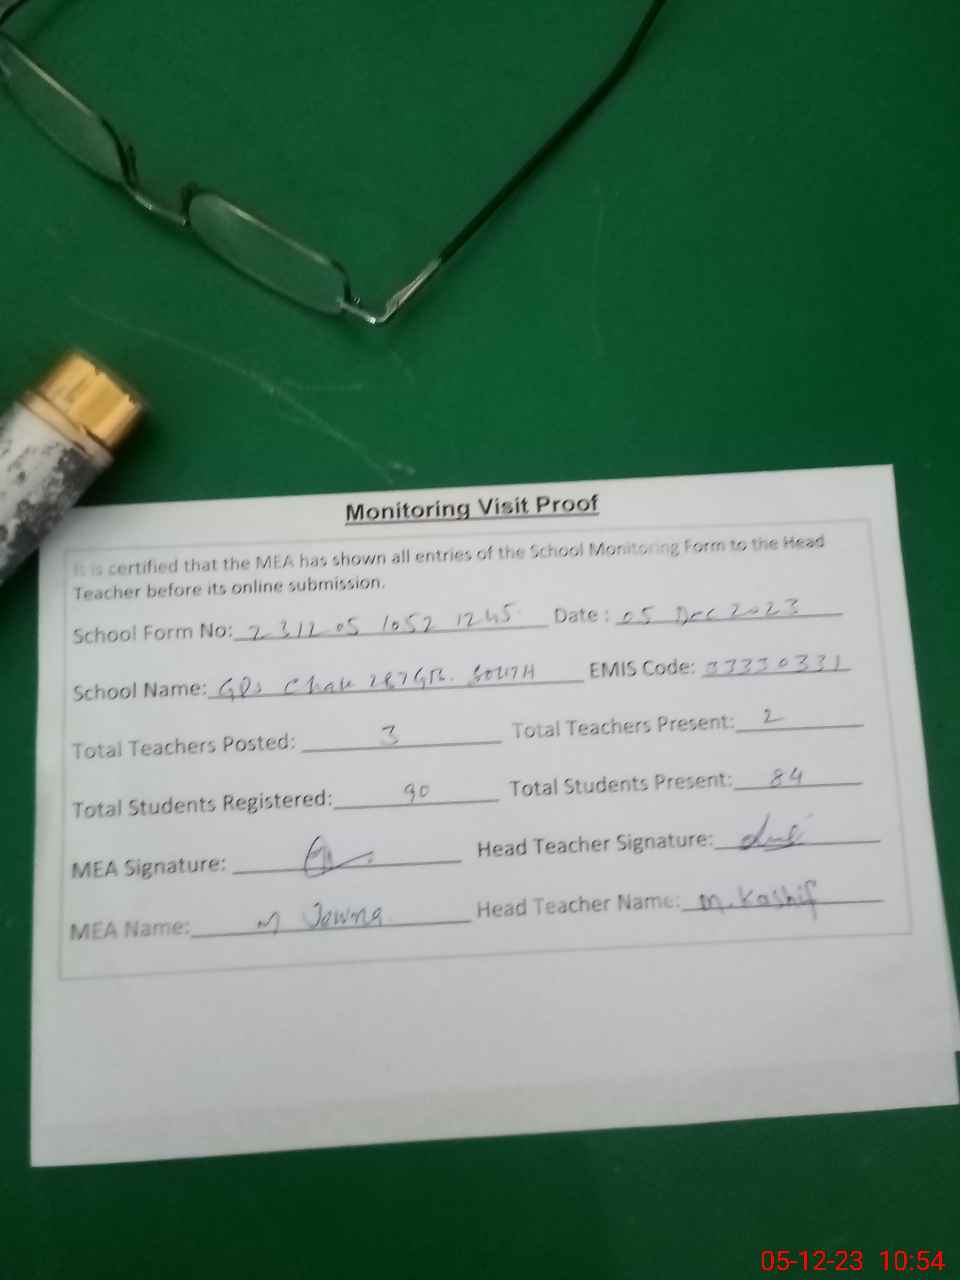 Monitoring Visit Proof
It is certified that the MEA has shown all entries of the School Monitoring Form to the Head
Teacher before its online submission.
School Form No: 231205 1052 1245 Date : 05 Dec 2023
School Name: GPS Chak 287 GB. SOUTH EMIS Code: 33330331
Total Teachers Posted: 3 Total Teachers Present: 2
Total Students Registered: 90 Total Students Present: 84
MEA Signature: Head Teacher Signature:
MEA Name: M Head Teacher Name: M. Kashif
05-12-23 10:54